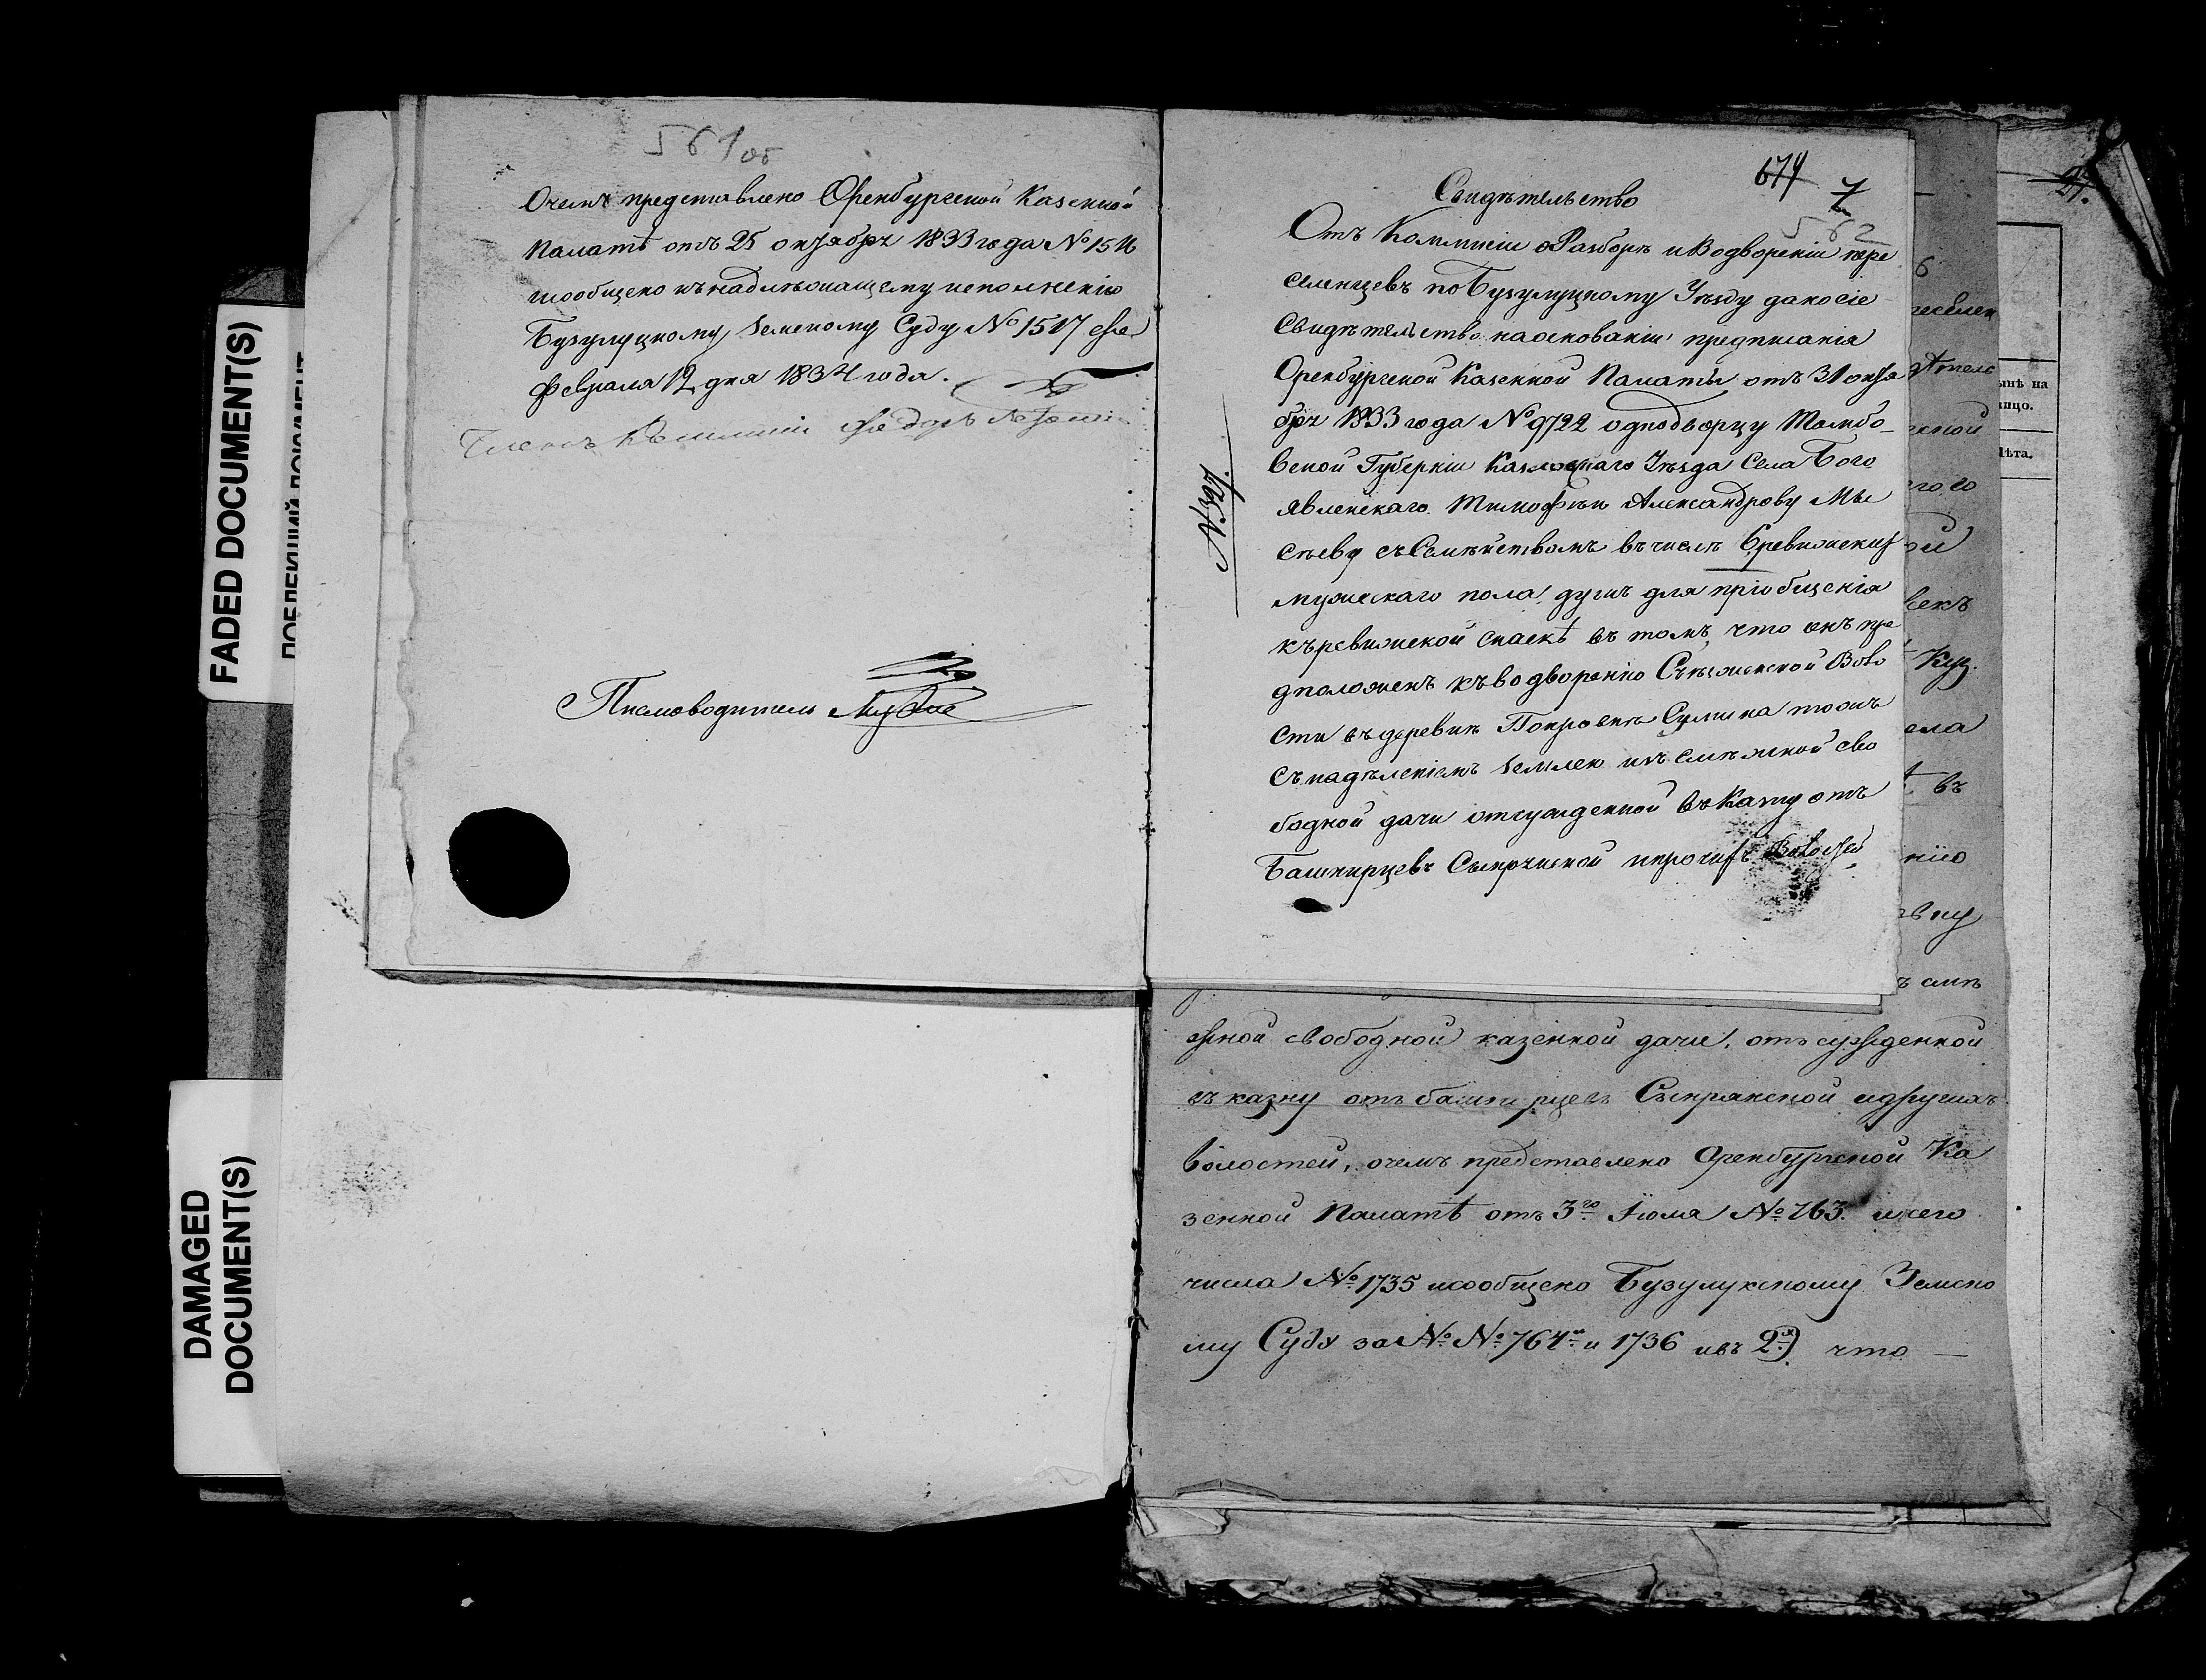 FADED DOCUMENT(S)
DAMAGED
DOCUMENT(S)
561 об
Очемъ представлено Оренбургской Казенной
Палатѣ отъ 25 октября 1833 года №
исообщено къ надлѣжащему исполненію
Бузулуцкому Земскому Суду № 1517
февраля 12 дня 1834 года.
Членъ Коммисіи Федоръ
Писмоводитель
674
7
562
Свидѣтельство
Отъ Коммисіи о Разборѣ и Водвореніи пере
селенцевъ по Бузулуцкому Уѣзду дано сіе
Свидѣтельство на основаніи предписанія
Оренбургской Казенной Палаты отъ 31 октя
бря 1833 года № 9722 однодворцу Тамбо
вской Губерніи Казловскаго Уѣзда Села Бого
явленскаго Тимофѣю Александрову Мы
сѣеву съ Семѣйствомъ въ числѣ 6 ревижскихъ
мужескаго пола душъ для пріобщенія
къ ревижской скаскѣ въ томъ, что онъ пре
дположенъ къ водворенію Съѣзженской Воло
сти въ деревнѣ Покровкѣ Сулина тожъ
съ надѣленіемъ землею изъ смѣжной сво
бодной дачи отсужденной въ Казну отъ
Башкирцевъ Сынрянской ипрочихъ Волостей
№ 397.
жной свободной казенной дачи, отъ сужденной
въ казну отъ башкирцевъ Сынрянской идругихъ
волостей, очемъ представлено Оренбургской Ка
зенной Палатѣ отъ 3го Іюля № 763. и сего
числа № 1735 исообщено Бузулукскому Земско
му Суду за №№ 764м и 1736 ивъ 2х) что —
6
ской
ого
векъ
Куз.
ела
въ
нію
вну
ъ смѣ
21.
ынѣ на
лицо.
Лѣта.